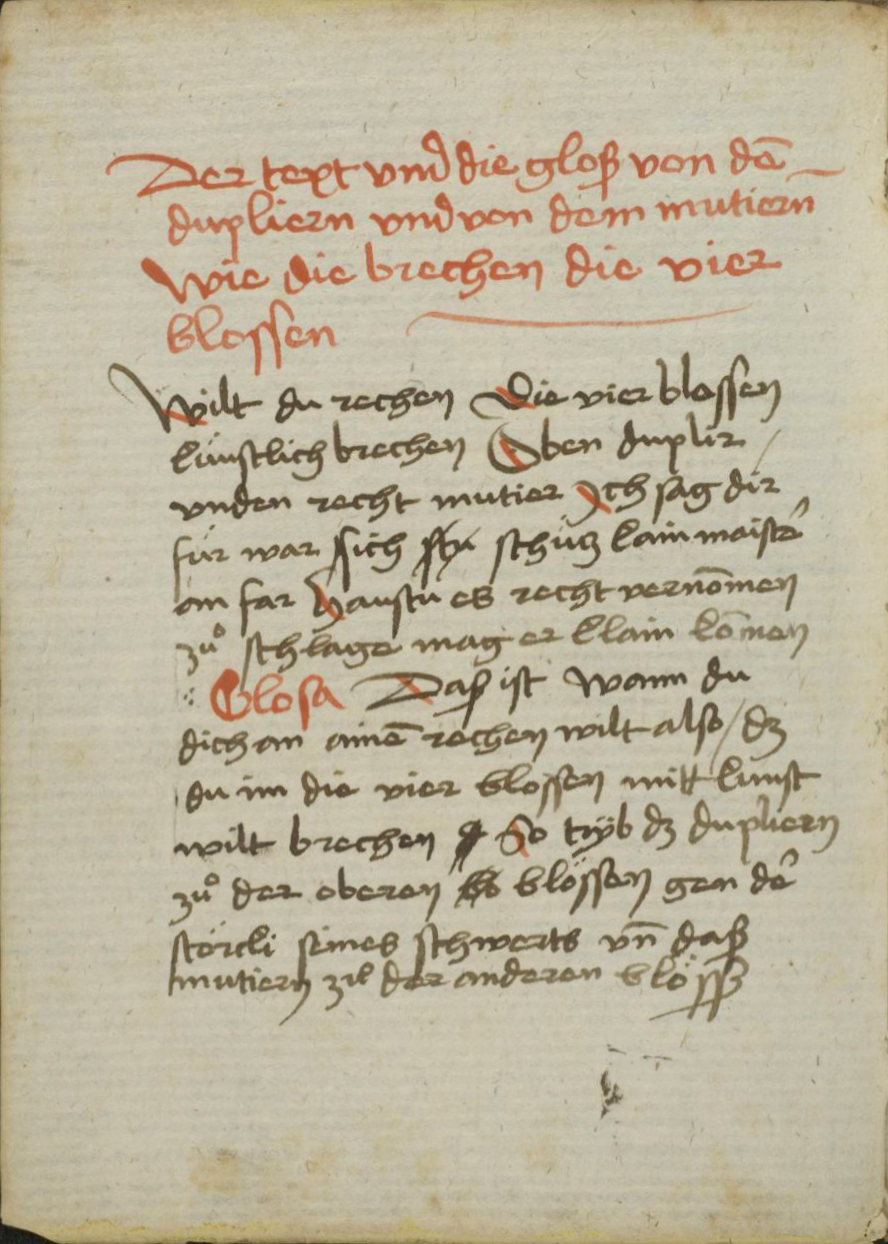 Der text vnd die gloß von dē
dupliern vnd von dem mutiern
wie die brechen die vier
blossen
Wilt du rechen Die vier blossen
künstlich brechen Oben duplir /
vnden recht mutier Ich sag dir
für war sich schütz kain maister̄
an far Haustu es recht vernōmen
zuͦ schlage mag er klain kōmen
Glosa Daß ist wann du
dich an ainē rechen wilt also / dz
du im die vier blossen mitt kunst
wilt brechen So tryb dz dupliern
zuͦ der oberen blössen gen de᷑
störcki seines schwerts vn̄ daß
mutiern zu der anderen blöss